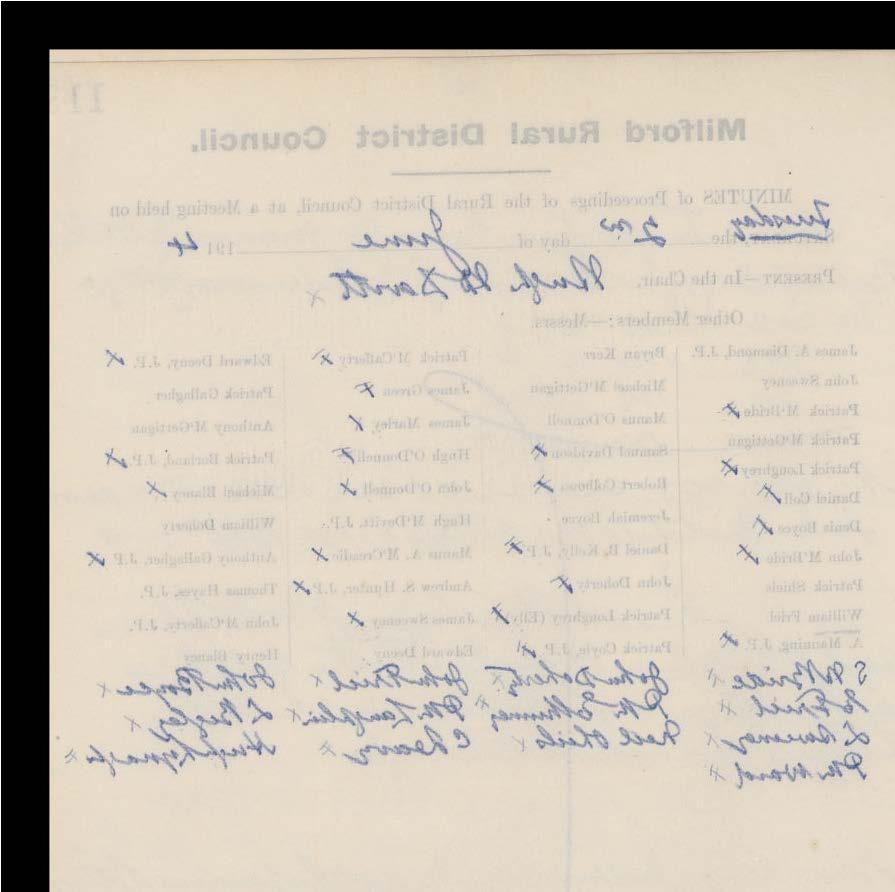 11
Milford Rural District Council.
MINUTES of Proceedings of the Rural District Council, at a Meeting held on
Tuesday
the 2nd day of June 1914
PRESENT—In the Chair, Hugh McDevitt x
Other Members:—Messrs.
James A. Diamond, J.P. Bryan Kerr Patrick M'Cafferty x Edward Deeny, J.P. x
John Sweeney Michael M'Gettigan James Green x Patrick Gallagher
Patrick M'Bride x Manus O'Donnell James Marley x Anthony M'Gettigan
Patrick M'Gettigan Samuel Davidson x Hugh O'Donnell x Patrick Borland, J.P. x
Patrick Loughrey x Robert Colhoun x John O'Donnell x Michael Blaney x
Daniel Coll x Jeremiah Boyce Hugh M'Devitt, J.P. William Doherty
Denis Boyce x Daniel B. Kelly, J.P. x Manus A. M'Creadie x Anthony Gallagher, J.P. x
John M'Bride x John Doherty x Andrew S. Hunter, J.P. x Thomas Hayes, J.P.
Patrick Shiels Patrick Loughrey (Ely) x James Sweeney x John M'Cafferty, J.P.
William Friel Patrick Coyle, J.P. x Edward Deeny Henry Blaney
A. Manning, J.P. x
S McBride x John Doherty x John Friel x John Boyce x
Friel x Pk x Pk x x
x Neil Shiels x x Hugh x
Pk Ward x